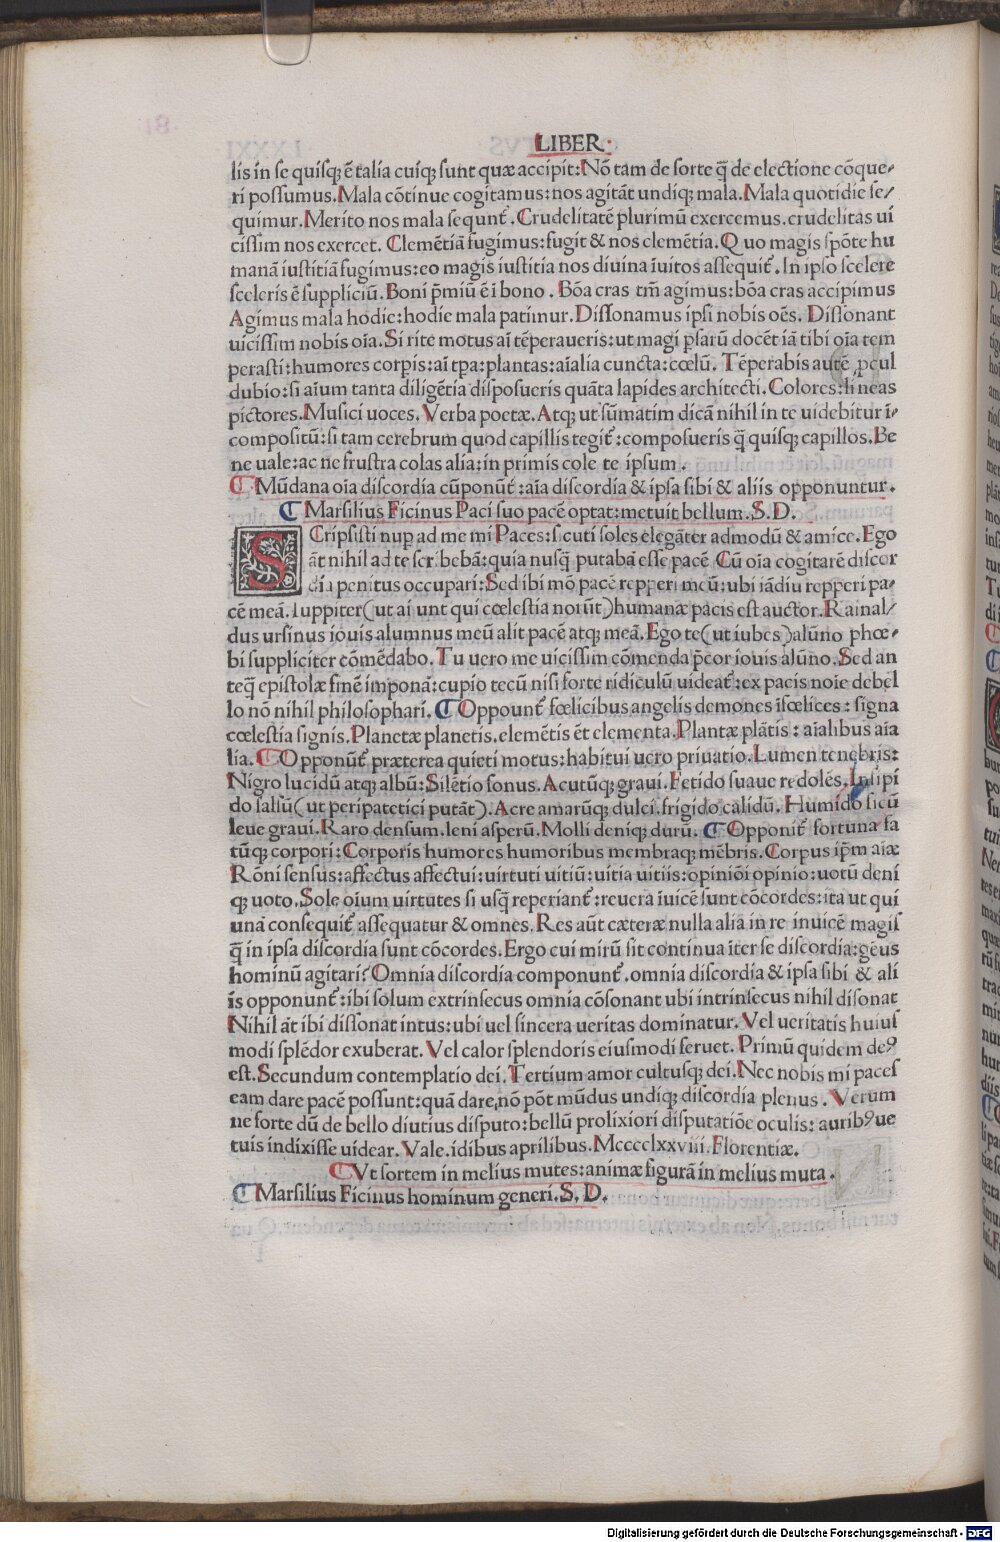 LIBER
lis in se quisq; ē talia cuiq; sunt quæ accipit: Nō tam de sorte q̄ de electione cōque⸗
ri possumus. Mala cōtinue cogitamus: nos agitāt undiq; mala. Mala quotidie se⸗
quimur. Merito nos mala sequunt᷑. Crudelitatē plurimū exercemus. crudelitas ui
cissim nos exercet. Clemētiā fugimus: fugit & nos clemētia. Quo magis spōte hu
manā iustitiā fugimus: eo magis iustitia nos diuina īuitos assequit᷑. In ipso scelere
sceleris ē suppliciū. Boni p̄miū ē ī bono. Bōa cras tm̄ agimus: bōa cras accipimus
Agimus mala hodie: hodie mala patimur. Dissonamus ipsi nobis oēs. Dissonant
uicissim nobis oīa. Si rite motus aī tēperaueris: ut magi psarū docēt iā tibi oīa tem
perasti: humores corpis: aī tpa: plantas: aīalia cuncta: cœlū. Tēperabis autē ꝓcul
dubio: si aīum tanta diligētia disposueris quāta lapides architecti. Colores: lineas
pictores. Musici uoces. Verba poetæ. Atq; ut sūmatim dicā nihil in te uidebitur ī⸗
compositū: si tam cerebrum quod capillis tegit᷑: composueris q̄ quisq; capillos. Be
ne uale: ac ne frustra colas alia: in primis cole te ipsum.
Mūdana oīa discordia cūponūt᷑: aīa discordia & ipsa sibi & aliis opponuntur.
Marsilius Ficinus Paci suo pacē optat: metuit bellum. S. D.
SCripsisti nup ad me mi Paces: sicuti soles elegāter admodū & amice. Ego
āt nihil ad te scribebā: quia nusq̄ putabā esse pacē Cū oīa cogitarē discor
dia penitus occupari: Sed ibi mō pacē repperi meū: ubi iādiu repperi pa⸗
cē meā. Iuppiter (ut aiunt qui cœlestia norūt) humanæ pacis est auctor. Rainal⸗
dus ursinus iouis alumnus meū alit pacē atq; meā. Ego te (ut iubes) alūno phœ⸗
bi suppliciter cōmēdabo. Tu uero me uicissim cōmenda p̄cor iouis alūno. Sed an
teq̄ epistolæ finē imponā: cupio tecū nisi forte ridiculū uideat᷑: ex pacis noīe debel
lo nō nihil philosophari. Oppount᷑ fœlicibus angelis demones īfœlices: signa
cœlestia signis. Planetæ planetis. elemētis ēt elementa. Plantæ plātis: aīalibus aīa
lia. Opponūt᷑ præterea quieti motus: habitui uero priuatio. Lumen tenebris:
Nigro lucidū atq; albū: Silētio sonus. Acutūq; graui. Fetido suaue redolēs. Insipi
do salsū (ut peripatetici putāt). Acre amarūq; dulci. frigido calidū. Humido sicū
leue graui. Raro densum. leni asperū. Molli deniq; durū. Opponit᷑ fortuna fa
tūq; corpori: Corporis humores humoribus membraq; mēbris. Corpus ip̄m aīæ
Rōni sensus: affectus affectui: uirtuti uitiū: uitia uitiis: opiniōi opinio: uotū deni
q; uoto. Sole oīum uirtutes si usq̄ reperiant᷑: reuera īuicē sunt cōcordes: ita ut qui
unā consequit᷑ assequatur & omnes. Res aūt cæteræ nulla alia in re inuicē magis
q̄ in ipsa discordia sunt cōcordes. Ergo cui mirū sit continua īter se discordia: gēus
hominū agitari? Omnia discordia componunt᷑. omnia discordia & ipsa sibi & ali
īs opponunt᷑: ibi solum extrinsecus omnia cōsonant ubi intrinsecus nihil disonat
Nihil āt ibi dissonat intus: ubi uel sincera ueritas dominatur. Vel ueritatis huius
modi splēdor exuberat. Vel calor splendoris eiusmodi feruet. Primū quidem deꝰ
est. Secundum contemplatio dei. Tertium amor cultusq; dei. Nec nobis mi paces
eam dare pacē possunt: quā dare nō pōt mūdus undiq; discordia plenus. Verum
ne forte dū de bello diutius disputo: bellū prolixiori disputatiōe oculis: auribꝰue
tuis indixisse uidear. Vale. idibus aprilibus. Mcccclxxviii. Florentiæ.
Vt sortem in melius mutes: animæ figurā in melius muta.
Marsilius Ficinus hominum generi. S. D.
Digitalisierung gefördert durch die Deutsche Forschungsgemeinschaft - DFG